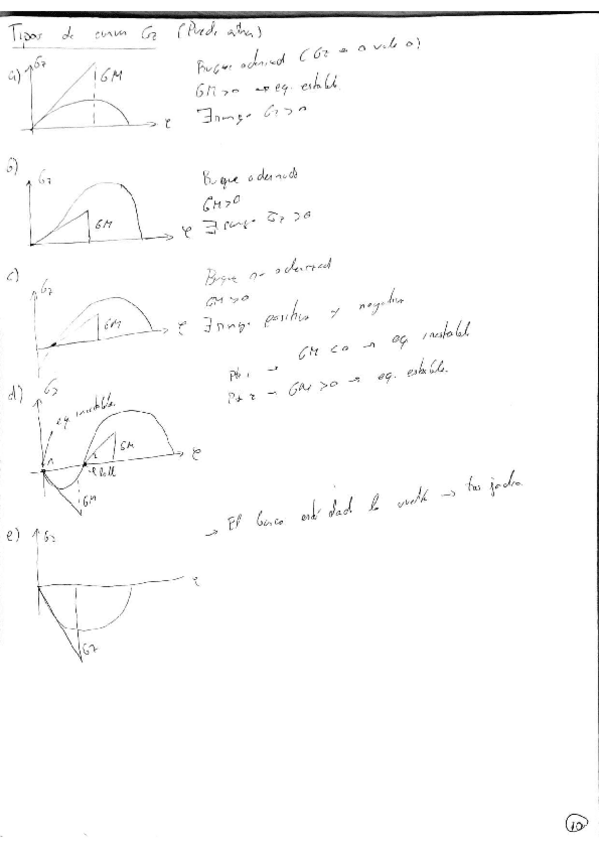 Tipos de curvas Gz (Puede entrar)
a) Gz
GM
φ
Buque adrizado (Gz = 0 en 0)
GM>0 → eq. estable
∃ rango Gz>0
b) Gz
GM
φ
Buque adrizado
GM>0
∃ rango Gz >0
c) Gz
GM
φ
Buque no adrizado
GM>0
∃ rango positivo y negativo
d) Gz
eq. inestable
1
2
GM
φ
φ loll
GM
Pto 1 → GM <0 → eq. inestable
Pto 2 → GM >0 → eq. estable.
e) Gz
φ
Gz
→ El barco está dado la vuelta →
10